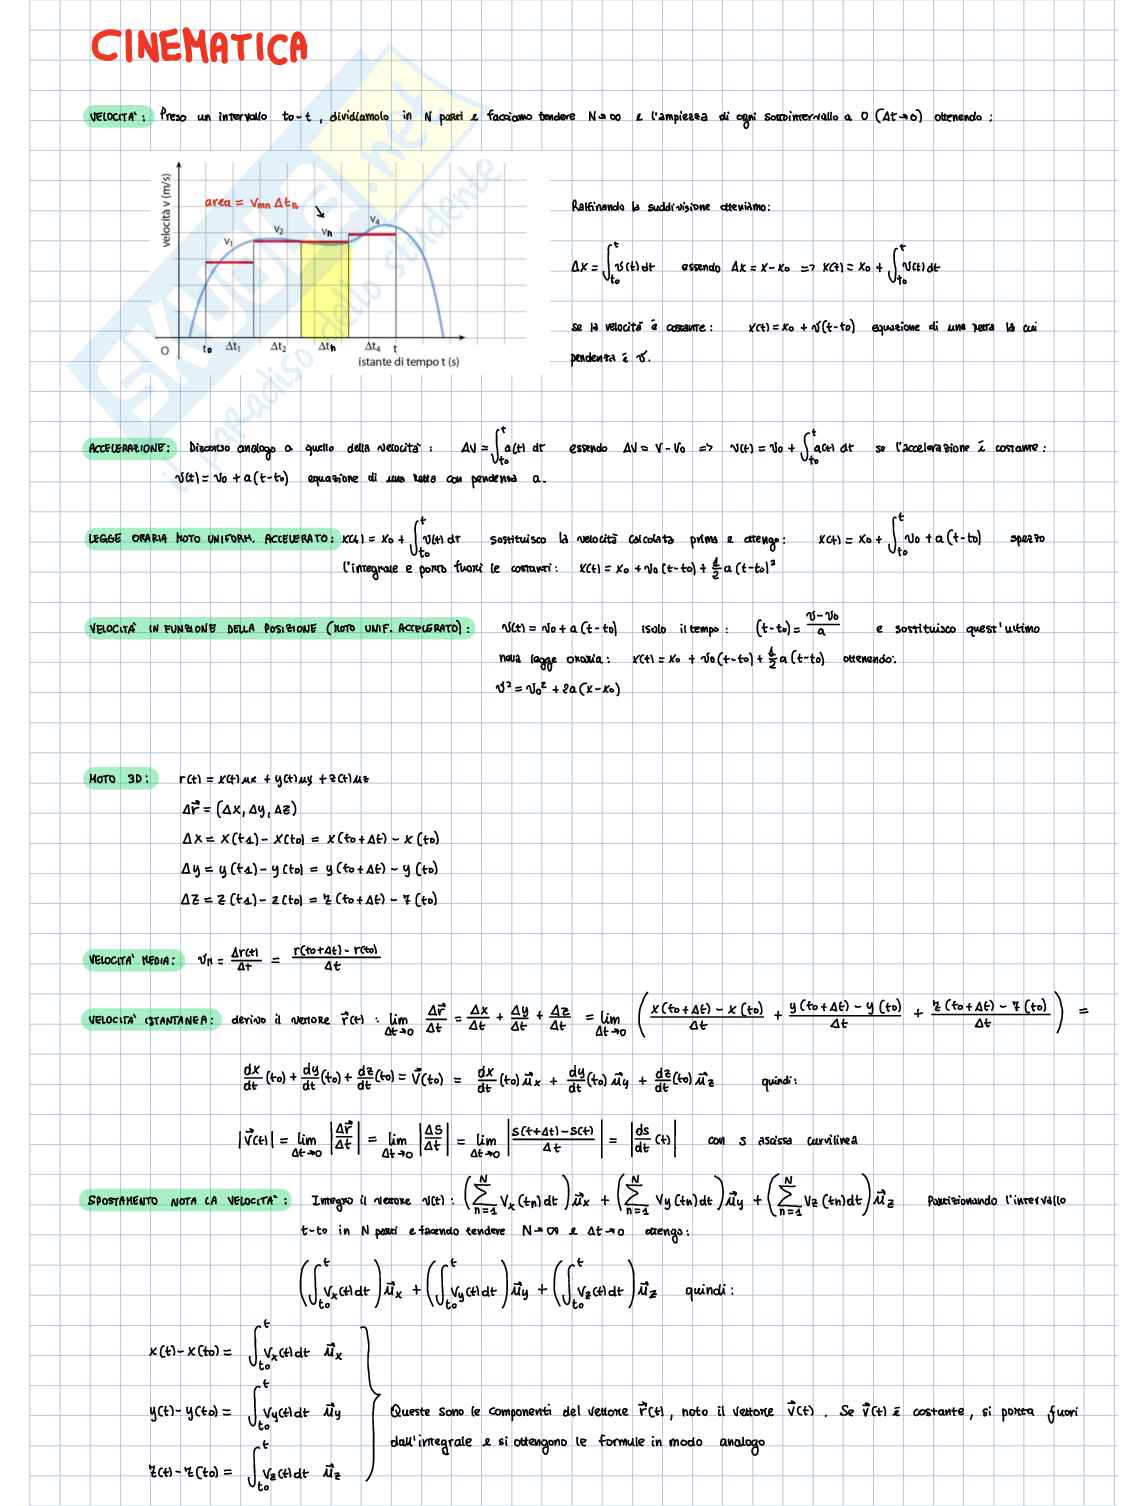 CINEMATICA
VELOCITA': Preso un intervallo t₀-t, dividiamolo in N parti e facciamo tendere N→∞ e l'ampiezza di ogni sottointervallo a 0 (Δt→0) ottenendo:
velocità v (m/s)
area = vmn Δtn
v₁ v₂ vn v₄
O t₀ Δt₁ Δt₂ Δtn Δt₄ t
istante di tempo t (s)
Raffinando la suddivisione otteniamo:
Δx = ∫_{t₀}^{t} v(t) dt essendo Δx = x-x₀ => x(t) = x₀ + ∫_{t₀}^{t} v(t) dt
se la velocità è costante: x(t) = x₀ + v(t-t₀) equazione di una retta la cui
pendenza è v.
ACCELERAZIONE: Discorso analogo a quello della velocità: ΔV = ∫_{t₀}^{t} a(t) dt essendo ΔV = V-V₀ => v(t) = v₀ + ∫_{t₀}^{t} a(t) dt se l'accelerazione è costante:
v(t) = v₀ + a(t-t₀) equazione di una retta con pendenza a.
LEGGE ORARIA MOTO UNIFORM. ACCELERATO: x(t) = x₀ + ∫_{t₀}^{t} v(t) dt sostituisco la velocità calcolata prima e ottengo: x(t) = x₀ + ∫_{t₀}^{t} v₀ + a(t-t₀) spezzo
l'integrale e porto fuori le costanti: x(t) = x₀ + v₀(t-t₀) + 1/2 a(t-t₀)²
VELOCITA' IN FUNZIONE DELLA POSIZIONE (MOTO UNIF. ACCELERATO): v(t) = v₀ + a(t-t₀) isolo il tempo: (t-t₀) = (v-v₀)/a e sostituisco quest'ultimo
nella legge oraria: x(t) = x₀ + v₀(t-t₀) + 1/2 a(t-t₀) ottenendo:
v² = v₀² + 2a(x-x₀)
MOTO 3D: r(t) = x(t)ux + y(t)uy + z(t)uz
Δr⃗ = (Δx, Δy, Δz)
Δx = x(t₁) - x(t₀) = x(t₀+Δt) - x(t₀)
Δy = y(t₁) - y(t₀) = y(t₀+Δt) - y(t₀)
Δz = z(t₁) - z(t₀) = z(t₀+Δt) - z(t₀)
VELOCITA' MEDIA: vM = Δr(t)/Δt = (r(t₀+Δt) - r(t₀))/Δt
VELOCITA' ISTANTANEA: derivo il vettore r⃗(t): lim_{Δt→0} Δr⃗/Δt = Δx/Δt + Δy/Δt + Δz/Δt = lim_{Δt→0} ((x(t₀+Δt) - x(t₀))/Δt + (y(t₀+Δt) - y(t₀))/Δt + (z(t₀+Δt) - z(t₀))/Δt) =
dx/dt (t₀) + dy/dt (t₀) + dz/dt (t₀) = V⃗(t₀) = dx/dt (t₀) u⃗x + dy/dt (t₀) u⃗y + dz/dt (t₀) u⃗z quindi:
|V⃗(t)| = lim_{Δt→0} |Δr⃗/Δt| = lim_{Δt→0} |ΔS/Δt| = lim_{Δt→0} |(s(t+Δt) - s(t))/Δt| = |ds/dt (t)| con s ascissa curvilinea
SPOSTAMENTO NOTA LA VELOCITA': Integro il vettore v(t): (∑_{n=1}^{N} Vx(tn)dt) u⃗x + (∑_{n=1}^{N} Vy(tn)dt) u⃗y + (∑_{n=1}^{N} Vz(tn)dt) u⃗z Partizionando l'intervallo
t-t₀ in N parti e facendo tendere N→∞ e Δt→0 ottengo:
(∫_{t₀}^{t} Vx(t)dt) u⃗x + (∫_{t₀}^{t} Vy(t)dt) u⃗y + (∫_{t₀}^{t} Vz(t)dt) u⃗z quindi:
x(t) - x(t₀) = ∫_{t₀}^{t} Vx(t)dt u⃗x
y(t) - y(t₀) = ∫_{t₀}^{t} Vy(t)dt u⃗y
z(t) - z(t₀) = ∫_{t₀}^{t} Vz(t)dt u⃗z
Queste sono le componenti del vettore r⃗(t), noto il vettore V⃗(t). Se V⃗(t) è costante, si porta fuori
dall'integrale e si ottengono le formule in modo analogo
SKUOLA.net
il paradiso dello studente